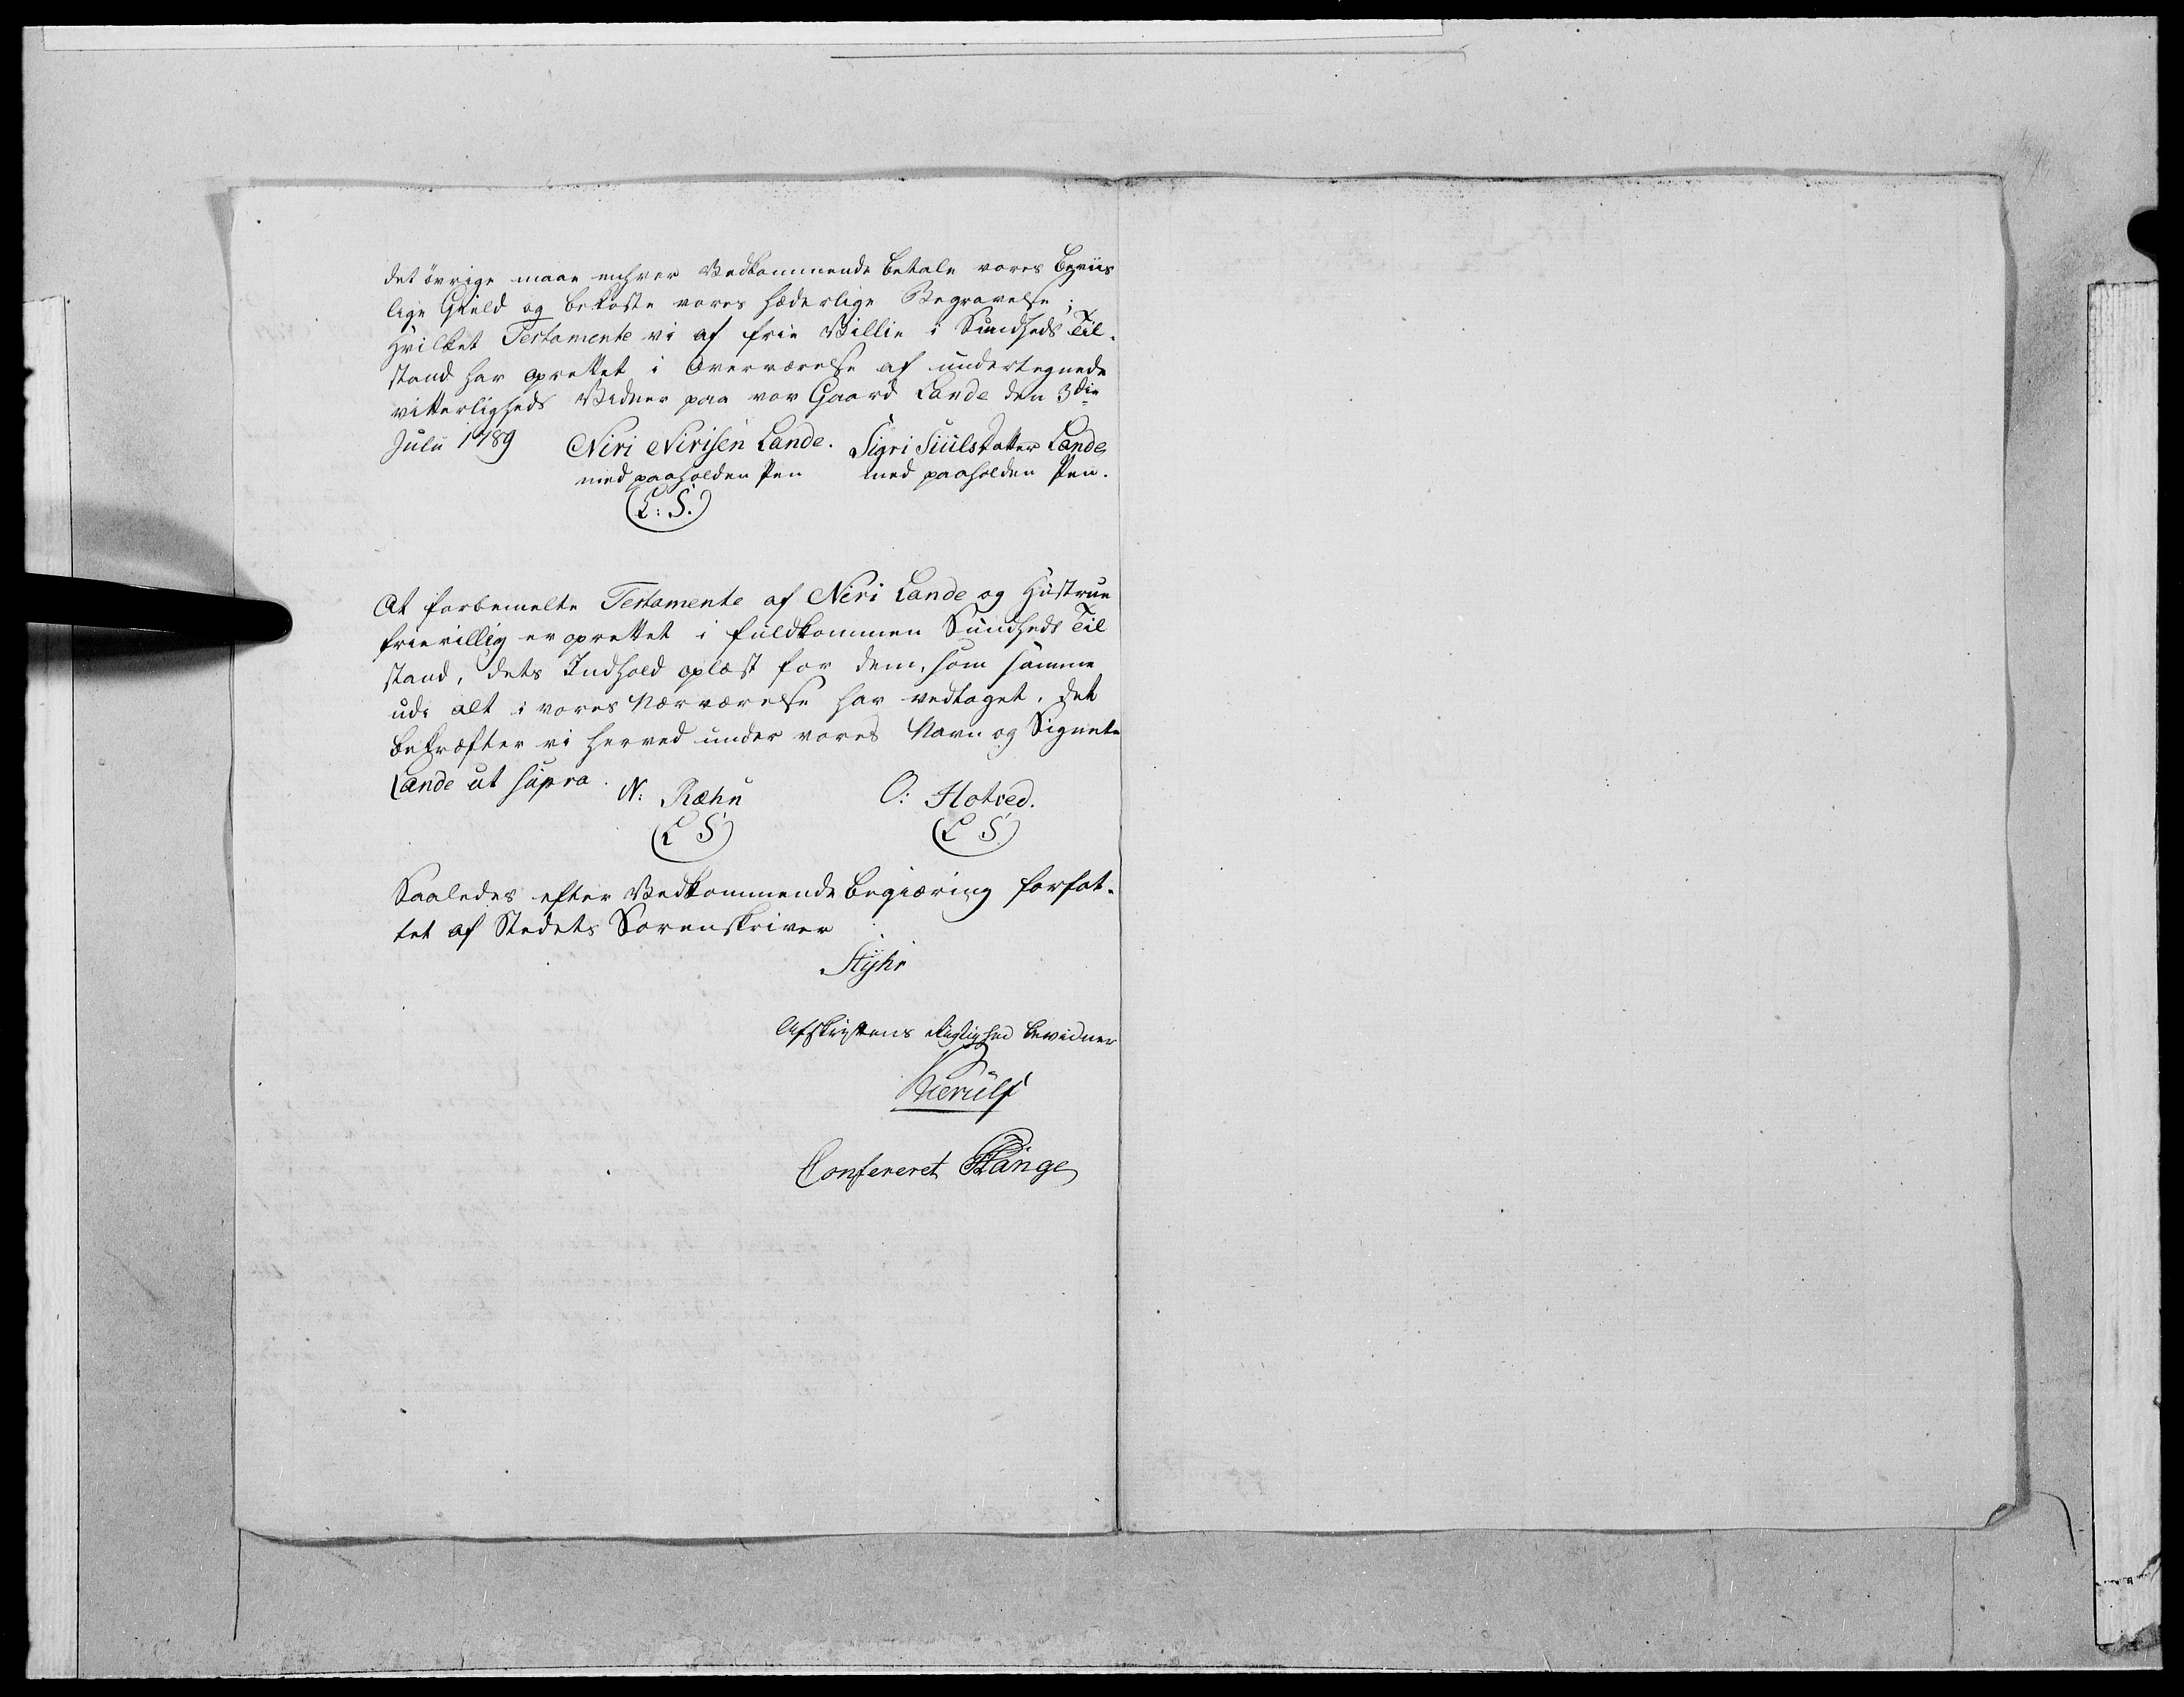 det övrige maae enhver Vedkommende betale vores beviis
lige Gield og bekoste vores hæderlige Begravelse;
Hvilket Testamente vi af frie Villie i Sundheds Til-
stand har oprettet i Overværelse af undertegnede
vitterligheds Vidner paa vor Gaard Lande den 3die
Julii 1789
Niri Nirisen Lande. Sigri Siülsdatter Lande
med paaholden Pen med paaholden Pen.
(L: S.)
At forbemelte Testamente af Niri Lande og Hustrue
frievillig er oprettet i fuldkommen Sundheds Til
stand, dets Indhold oplæst for dem, som samme
udi alt i vores Nærværelse har vedtaget, det
bekræfter vi herved under vores Navn og Signete
Lande ut supra.
N: Ræhn O: Hotved.
(L S) (L S)
Saaledes efter Vedkommende Begiæring forfat-
tet af Stedets Sorenskriver
Styhr
Afskriftens Rigtighed bevidner
Kierulf
Confereret Stange